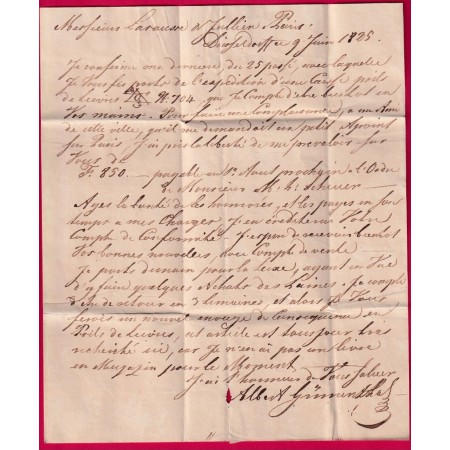 Messieurs Larausse & Jullien Paris.
Dusseldorff ce 9 Juin 1825.
Je confirme ma dernière du 25 passé, avec laquelle
Je Vous fis part de l'expédition d'une Caisse poils
de Lievre N. 704, que Je Compte d'être bientot en
Vos mains. Pour faire une Complaisance, a un Ami
de cette ville, qui m'a demandoit un petit Apoint
sur Paris, J'ai pris la liberté de me prevaloir sur
Vous de
F. 850.— payable au Aout prochain à l'Ordre
de Monsieur M. H. Scheuer
Ayez la bonté de les honnorer, & les payer en son
temps a mes Charges, J'en crediterai Votre
Compte de Conformité. J'espere de recevoir bientot
Vos bonnes nouvelles, avec Compte de vente
Je parts demain pour la ayant en Vue
d'y faire quelques Achats des Laines. Je compte
d'en de retour en 3 Semaines, et alors Je Vous
ferois un nouvel envoye de Consequence en
Poils de Lievre, cet article est toujours très
recherché ici, car Je n'en ai pas un livre
en Magazin pour le Moment
J'ai l'honneur de Vous Saluer
Albert Grünenthal